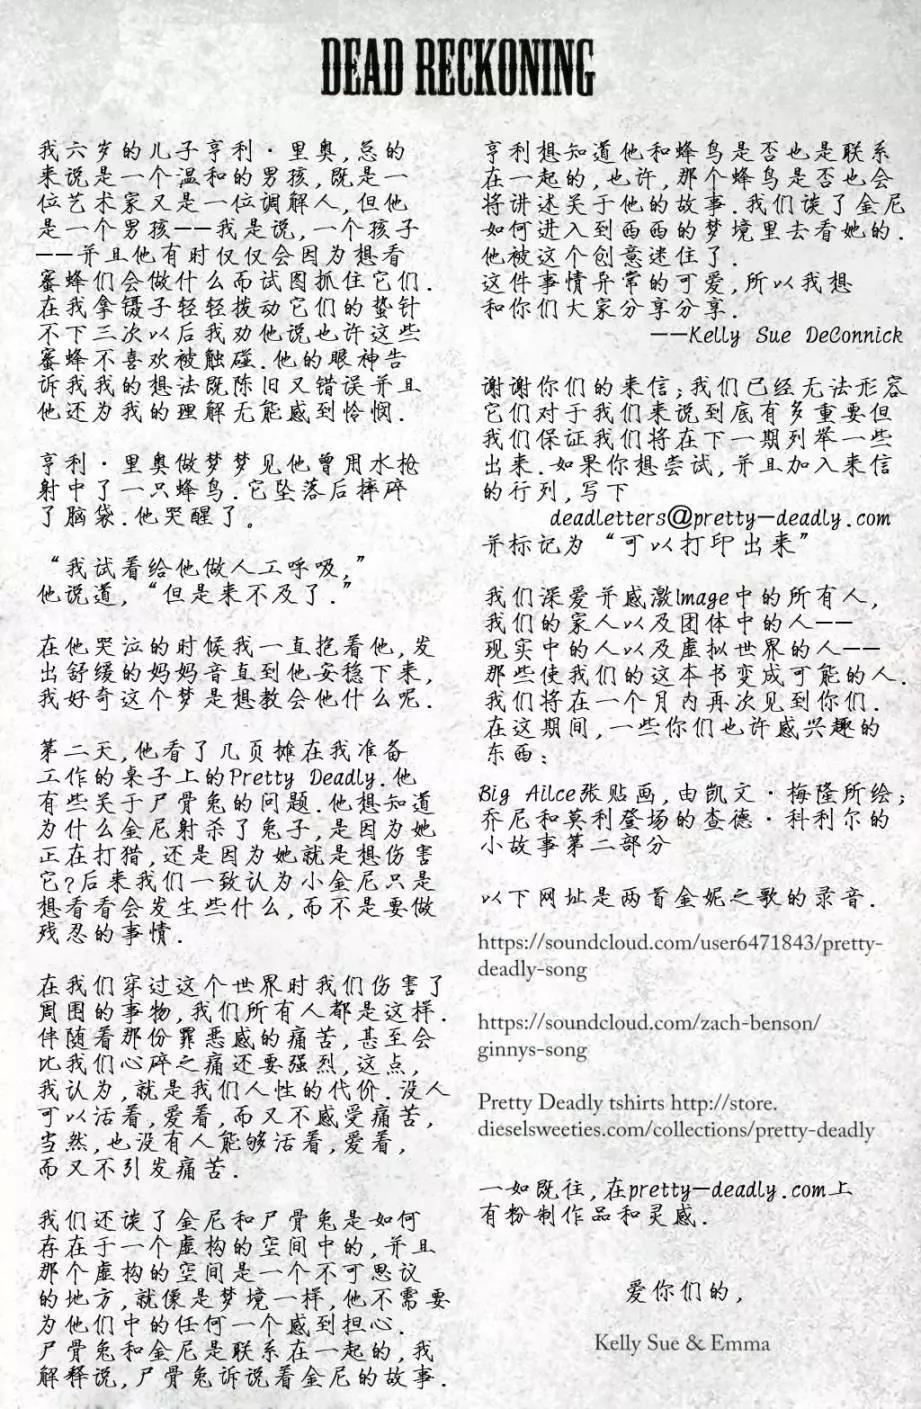 DEAD RECKONING
我六岁的儿子亨利·里奥,总的
来说是一个温和的男孩,既是一
位艺术家又是一位调解人,但他
是一个男孩——我是说,一个孩子
——并且他有时仅仅会因为想看
蜜蜂们会做什么而试图抓住它们.
在我拿镊子轻轻拨动它们的蛰针
不下三次以后我劝他说也许这些
蜜蜂不喜欢被触碰.他的眼神告
诉我我的想法既陈旧又错误并且
他还为我的理解无能感到怜悯.
亨利·里奥做梦梦见他曾用水枪
射中了一只蜂鸟.它坠落后摔碎
了脑袋.他哭醒了。
“我试着给他做人工呼吸,”
他说道,“但是来不及了.”
在他哭泣的时候我一直抱着他,发
出舒缓的妈妈音直到他安稳下来,
我好奇这个梦是想教会他什么呢.
第二天,他看了几页摊在我准备
工作的桌子上的Pretty Deadly.他
有些关于尸骨兔的问题.他想知道
为什么金尼射杀了兔子,是因为她
正在打猎,还是因为她就是想伤害
它?后来我们一致认为小金尼只是
想看看会发生些什么,而不是要做
残忍的事情.
在我们穿过这个世界时我们伤害了
周围的事物,我们所有人都是这样.
伴随着那份罪恶感的痛苦,甚至会
比我们心碎之痛还要强烈,这点,
我认为,就是我们人性的代价.没人
可以活着,爱着,而又不感受痛苦,
当然,也没有人能够活着,爱着,
而又不引发痛苦.
我们还谈了金尼和尸骨兔是如何
存在于一个虚构的空间中的,并且
那个虚构的空间是一个不可思议
的地方,就像是梦境一样,他不需要
为他们中的任何一个感到担心.
尸骨兔和金尼是联系在一起的,我
解释说,尸骨兔诉说着金尼的故事.
亨利想知道他和蜂鸟是否也是联系
在一起的,也许,那个蜂鸟是否也会
将讲述关于他的故事.我们谈了金尼
如何进入到西西的梦境里去看她的.
他被这个创意迷住了.
这件事情异常的可爱,所以我想
和你们大家分享分享.
——Kelly Sue DeConnick
谢谢你们的来信;我们已经无法形容
它们对于我们来说到底有多重要但
我们保证我们将在下一期列举一些
出来.如果你想尝试,并且加入来信
的行列,写下
deadletters@pretty-deadly.com
并标记为“可以打印出来”
我们深爱并感激Image中的所有人,
我们的家人以及团体中的人——
现实中的人以及虚拟世界的人——
那些使我们的这本书变成可能的人.
我们将在一个月内再次见到你们.
在这期间,一些你们也许感兴趣的
东西:
Big Ailce张贴画,由凯文·梅隆所绘;
乔尼和莫利登场的查德·科利尔的
小故事第二部分
以下网址是两首金妮之歌的录音.
https://soundcloud.com/user6471843/pretty-
deadly-song
https://soundcloud.com/zach-benson/
ginnys-song
Pretty Deadly tshirts http://store.
dieselsweeties.com/collections/pretty-deadly
一如既往,在pretty-deadly.com上
有粉制作品和灵感.
爱你们的,
Kelly Sue & Emma